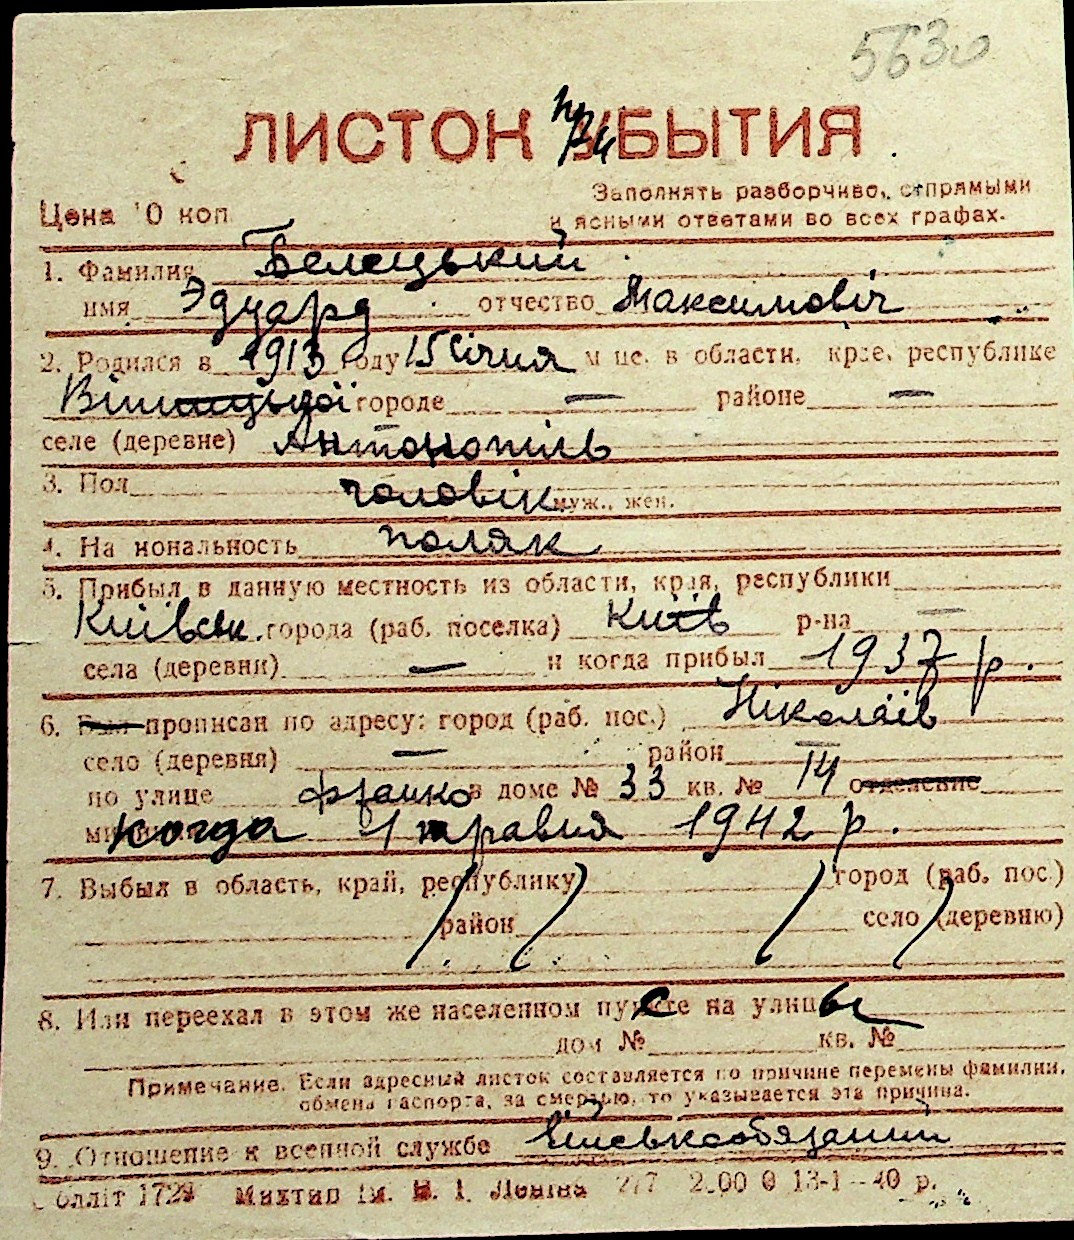 5630
ЛИСТОК при УБЫТИЯ
Заполнять разборчиво, с прямыми
Цена 10 коп
и ясными ответами во всех графах.
1. Фамилия Белецький
имя Эдуард отчество Максимовіч
2. Родился в 1913 году 15 січня м-це. в области, крае, республике
Вінницької городе — районе —
селе (деревне) Антонопіль
3. Пол чоловік муж., жен.
4. На иональность поляк
5. Прибыл в данную местность из области, края, республики
Київськ. города (раб. поселка) Київ р-на —
села (деревни) — и когда прибыл 1937 р.
6. Был прописан по адресу: город (раб. пос.) Ніколаїв
село (деревня) — район —
по улице Франко в доме № 33 кв. № 14 отделение
когда 1 травня 1942 р.
7. Выбыл в область, край, республику город (раб. пос.)
район село (деревню)
8. Или переехал в этом же населенном пункте с на улицы
дом № кв. №
Примечание. Если адресный листок составляется по причине перемены фамилии,
обмена паспорта, за смертью, то указывается эта причина.
9. Отношение к военной службе Військообязаний
обліт 1729 Миктип ім. В. І. Леніна 277 2.00 0 13-1-40 р.